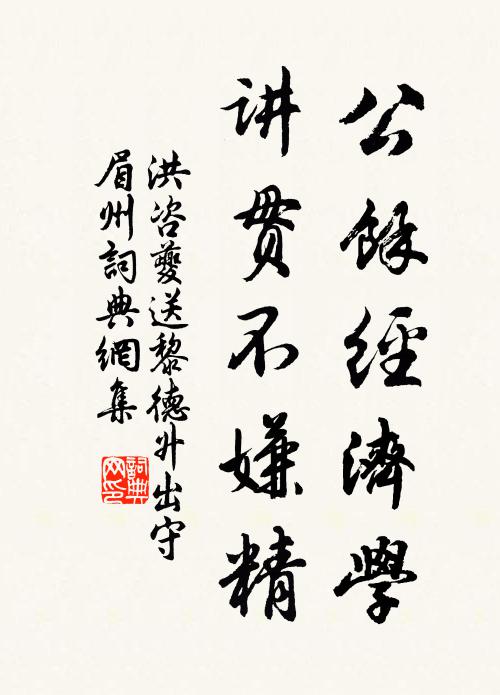 公餘經濟學
讲贯不嫌精
洪咨夔送黎德升出守
眉州詞典網集
詞典网印